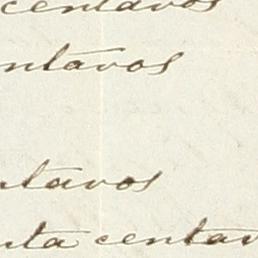 centavos
ntavos
ntavos
nta centav